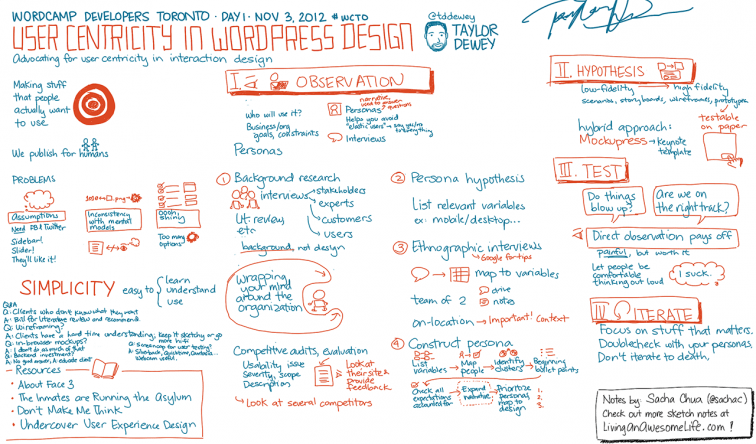 WORDCAMP DEVELOPERS TORONTO · DAY 1 · NOV 3, 2012 #WCTO
USER CENTRICITY IN WORDPRESS DESIGN
@tddewey
TAYLOR
DEWEY
Advocating for user centricity in interaction design
Making stuff
that people
actually want
to use
We publish for humans
PROBLEMS
Assumptions
Need FB & Twitter
Sidebar!
Slider!
They'll like it!
Inconsistency
with mental
models
Oooh,
shiny
Too many
options!
SIMPLICITY
easy to
learn
understand
use
Q&A
Q: Clients who don't know what they want
A: Bill for literature review and recommend.
Q: Wireframing?
A: Clients have a hard time understanding; keep it sketchy or go
more hi-fi
Q: In-browser mockups?
A: I don't do as much of that
Q: Backend investment?
Resources
· About Face 3
· The Inmates are Running the Asylum
· Don't Make Me Think
· Undercover User Experience Design
I. OBSERVATION
Who will use it?
Business/org
goals, constraints
Personas
narrative,
used to answer
questions
Personas
Helps you avoid
"elastic users"
Interviews
① Background research
interviews
stakeholders
experts
customers
users
Lit. review
etc
background, not design
Wrapping
your mind
around the
organization
Competitive audits, evaluation
Usability issue
Severity, scope
Description
Look at
their site &
provide
feedback
Look at several competitors
② Persona hypothesis
List relevant variables
ex: mobile/desktop...
③ Ethnographic interviews
Google for tips
map to variables
team of 2
drive
notes
on-location → Important! Context
④ Construct persona
List
variables
Map
people
Identify
clusters
Beginning
bullet points
Check all
expectations
accounted for
Expand
narrative
Prioritize
personas,
map to
design
1.
2.
3.
II. HYPOTHESIS
low-fidelity → high fidelity
scenarios, storyboards, wireframes, prototypes
testable
on paper
hybrid approach:
Mockupress → Keynote
template
III. TEST
Do things
blow up?
Are we on
the right track?
Direct observation pays off
Painful, but worth it
Let people be
comfortable
thinking out loud
I suck.
IV ITERATE
Focus on stuff that matters.
Doublecheck with your personas.
Don't iterate to death.
Notes by: Sacha Chua (@sachac)
Check out more sketch notes at
LivingAnAwesomeLife.com !